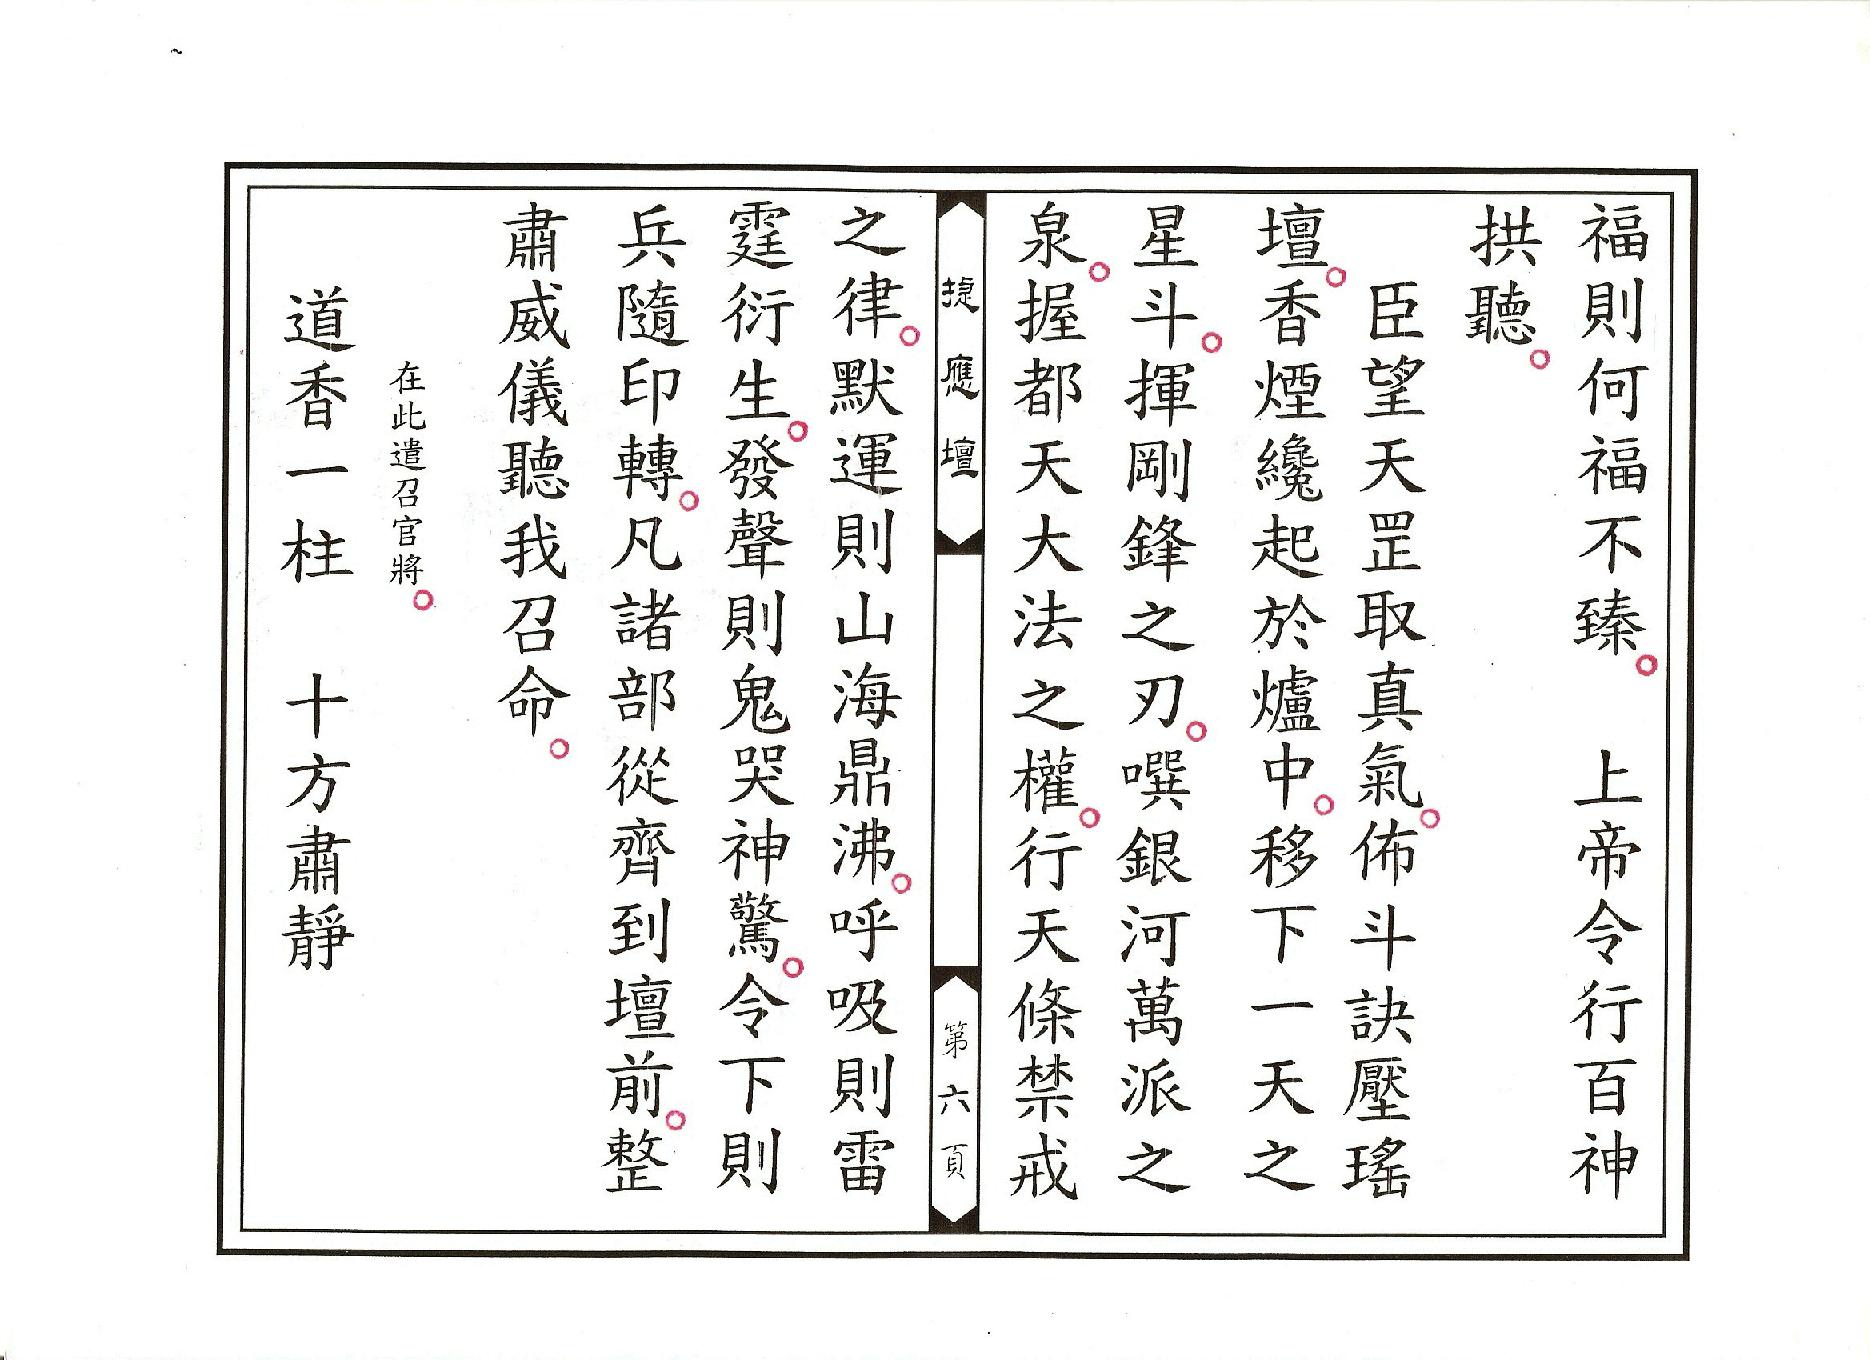 福則何福不臻。　上帝令行百神
拱聽。
臣望天罡取真氣。佈斗訣壓瑤
壇。香煙纔起於爐中。移下一天之
星斗。揮剛鋒之刃。噀銀河萬派之
泉。握都天大法之權。行天條禁戒
捷應壇
第六頁
之律。默運則山海鼎沸。呼吸則雷
霆衍生。發聲則鬼哭神驚。令下則
兵隨印轉。凡諸部從齊到壇前。整
肅威儀聽我召命。
在此遣召官將。
道香一柱　十方肅靜